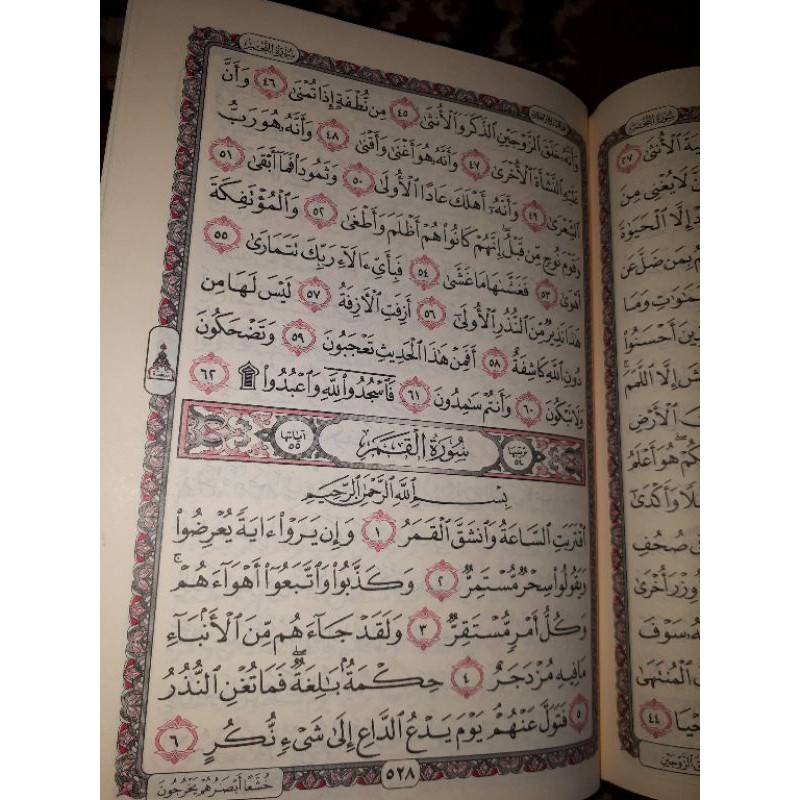 سُورَةُ النَّجْمِ
وَأَنَّهُۥ خَلَقَ ٱلزَّوۡجَيۡنِ ٱلذَّكَرَ وَٱلۡأُنثَىٰ ٤٥ مِن نُّطۡفَةٍ إِذَا تُمۡنَىٰ ٤٦ وَأَنَّ
عَلَيۡهِ ٱلنَّشۡأَةَ ٱلۡأُخۡرَىٰ ٤٧ وَأَنَّهُۥ هُوَ أَغۡنَىٰ وَأَقۡنَىٰ ٤٨ وَأَنَّهُۥ هُوَ رَبُّ
ٱلشِّعۡرَىٰ ٤٩ وَأَنَّهُۥٓ أَهۡلَكَ عَادًا ٱلۡأُولَىٰ ٥٠ وَثَمُودَاْ فَمَآ أَبۡقَىٰ ٥١
وَقَوۡمَ نُوحٖ مِّن قَبۡلُۖ إِنَّهُمۡ كَانُواْ هُمۡ أَظۡلَمَ وَأَطۡغَىٰ ٥٢ وَٱلۡمُؤۡتَفِكَةَ
أَهۡوَىٰ ٥٣ فَغَشَّىٰهَا مَا غَشَّىٰ ٥٤ فَبِأَيِّ ءَالَآءِ رَبِّكَ تَتَمَارَىٰ ٥٥
هَٰذَا نَذِيرٞ مِّنَ ٱلنُّذُرِ ٱلۡأُولَىٰٓ ٥٦ أَزِفَتِ ٱلۡأٓزِفَةُ ٥٧ لَيۡسَ لَهَا مِن
دُونِ ٱللَّهِ كَاشِفَةٌ ٥٨ أَفَمِنۡ هَٰذَا ٱلۡحَدِيثِ تَعۡجَبُونَ ٥٩ وَتَضۡحَكُونَ
وَلَا تَبۡكُونَ ٦٠ وَأَنتُمۡ سَٰمِدُونَ ٦١ فَٱسۡجُدُواْ لِلَّهِ وَٱعۡبُدُواْ ۩ ٦٢
سُورَةُ القَمَرِ آياتها ٥٥
بِسۡمِ ٱللَّهِ ٱلرَّحۡمَٰنِ ٱلرَّحِيمِ
ٱقۡتَرَبَتِ ٱلسَّاعَةُ وَٱنشَقَّ ٱلۡقَمَرُ ١ وَإِن يَرَوۡاْ ءَايَةٗ يُعۡرِضُواْ
وَيَقُولُواْ سِحۡرٞ مُّسۡتَمِرّٞ ٢ وَكَذَّبُواْ وَٱتَّبَعُوٓاْ أَهۡوَآءَهُمۡۚ
وَكُلُّ أَمۡرٖ مُّسۡتَقِرّٞ ٣ وَلَقَدۡ جَآءَهُم مِّنَ ٱلۡأَنۢبَآءِ
مَا فِيهِ مُزۡدَجَرٌ ٤ حِكۡمَةُۢ بَٰلِغَةٞۖ فَمَا تُغۡنِ ٱلنُّذُرُ
٥ فَتَوَلَّ عَنۡهُمۡۘ يَوۡمَ يَدۡعُ ٱلدَّاعِ إِلَىٰ شَيۡءٖ نُّكُرٍ ٦
٥٢٨
خُشَّعًا أَبۡصَٰرُهُمۡ يَخۡرُجُونَ
سُورَةُ النَّجْمِ
ٱلۡأُنثَىٰ ٢٧
لَا يُغۡنِي مِنَ
إِلَّا ٱلۡحَيَوٰةَ
بِمَن ضَلَّ عَن
وَمَا
أَحۡسَنُواْ
إِلَّا ٱللَّمَمَۚ
ٱلۡأَرۡضِ
هُوَ أَعۡلَمُ
وَأَكۡدَىٰٓ
صُحُفِ
وِزۡرَ أُخۡرَىٰ
سَوۡفَ
ٱلۡمُنتَهَىٰ
٤٤
ٱلزَّوۡجَيۡنِ